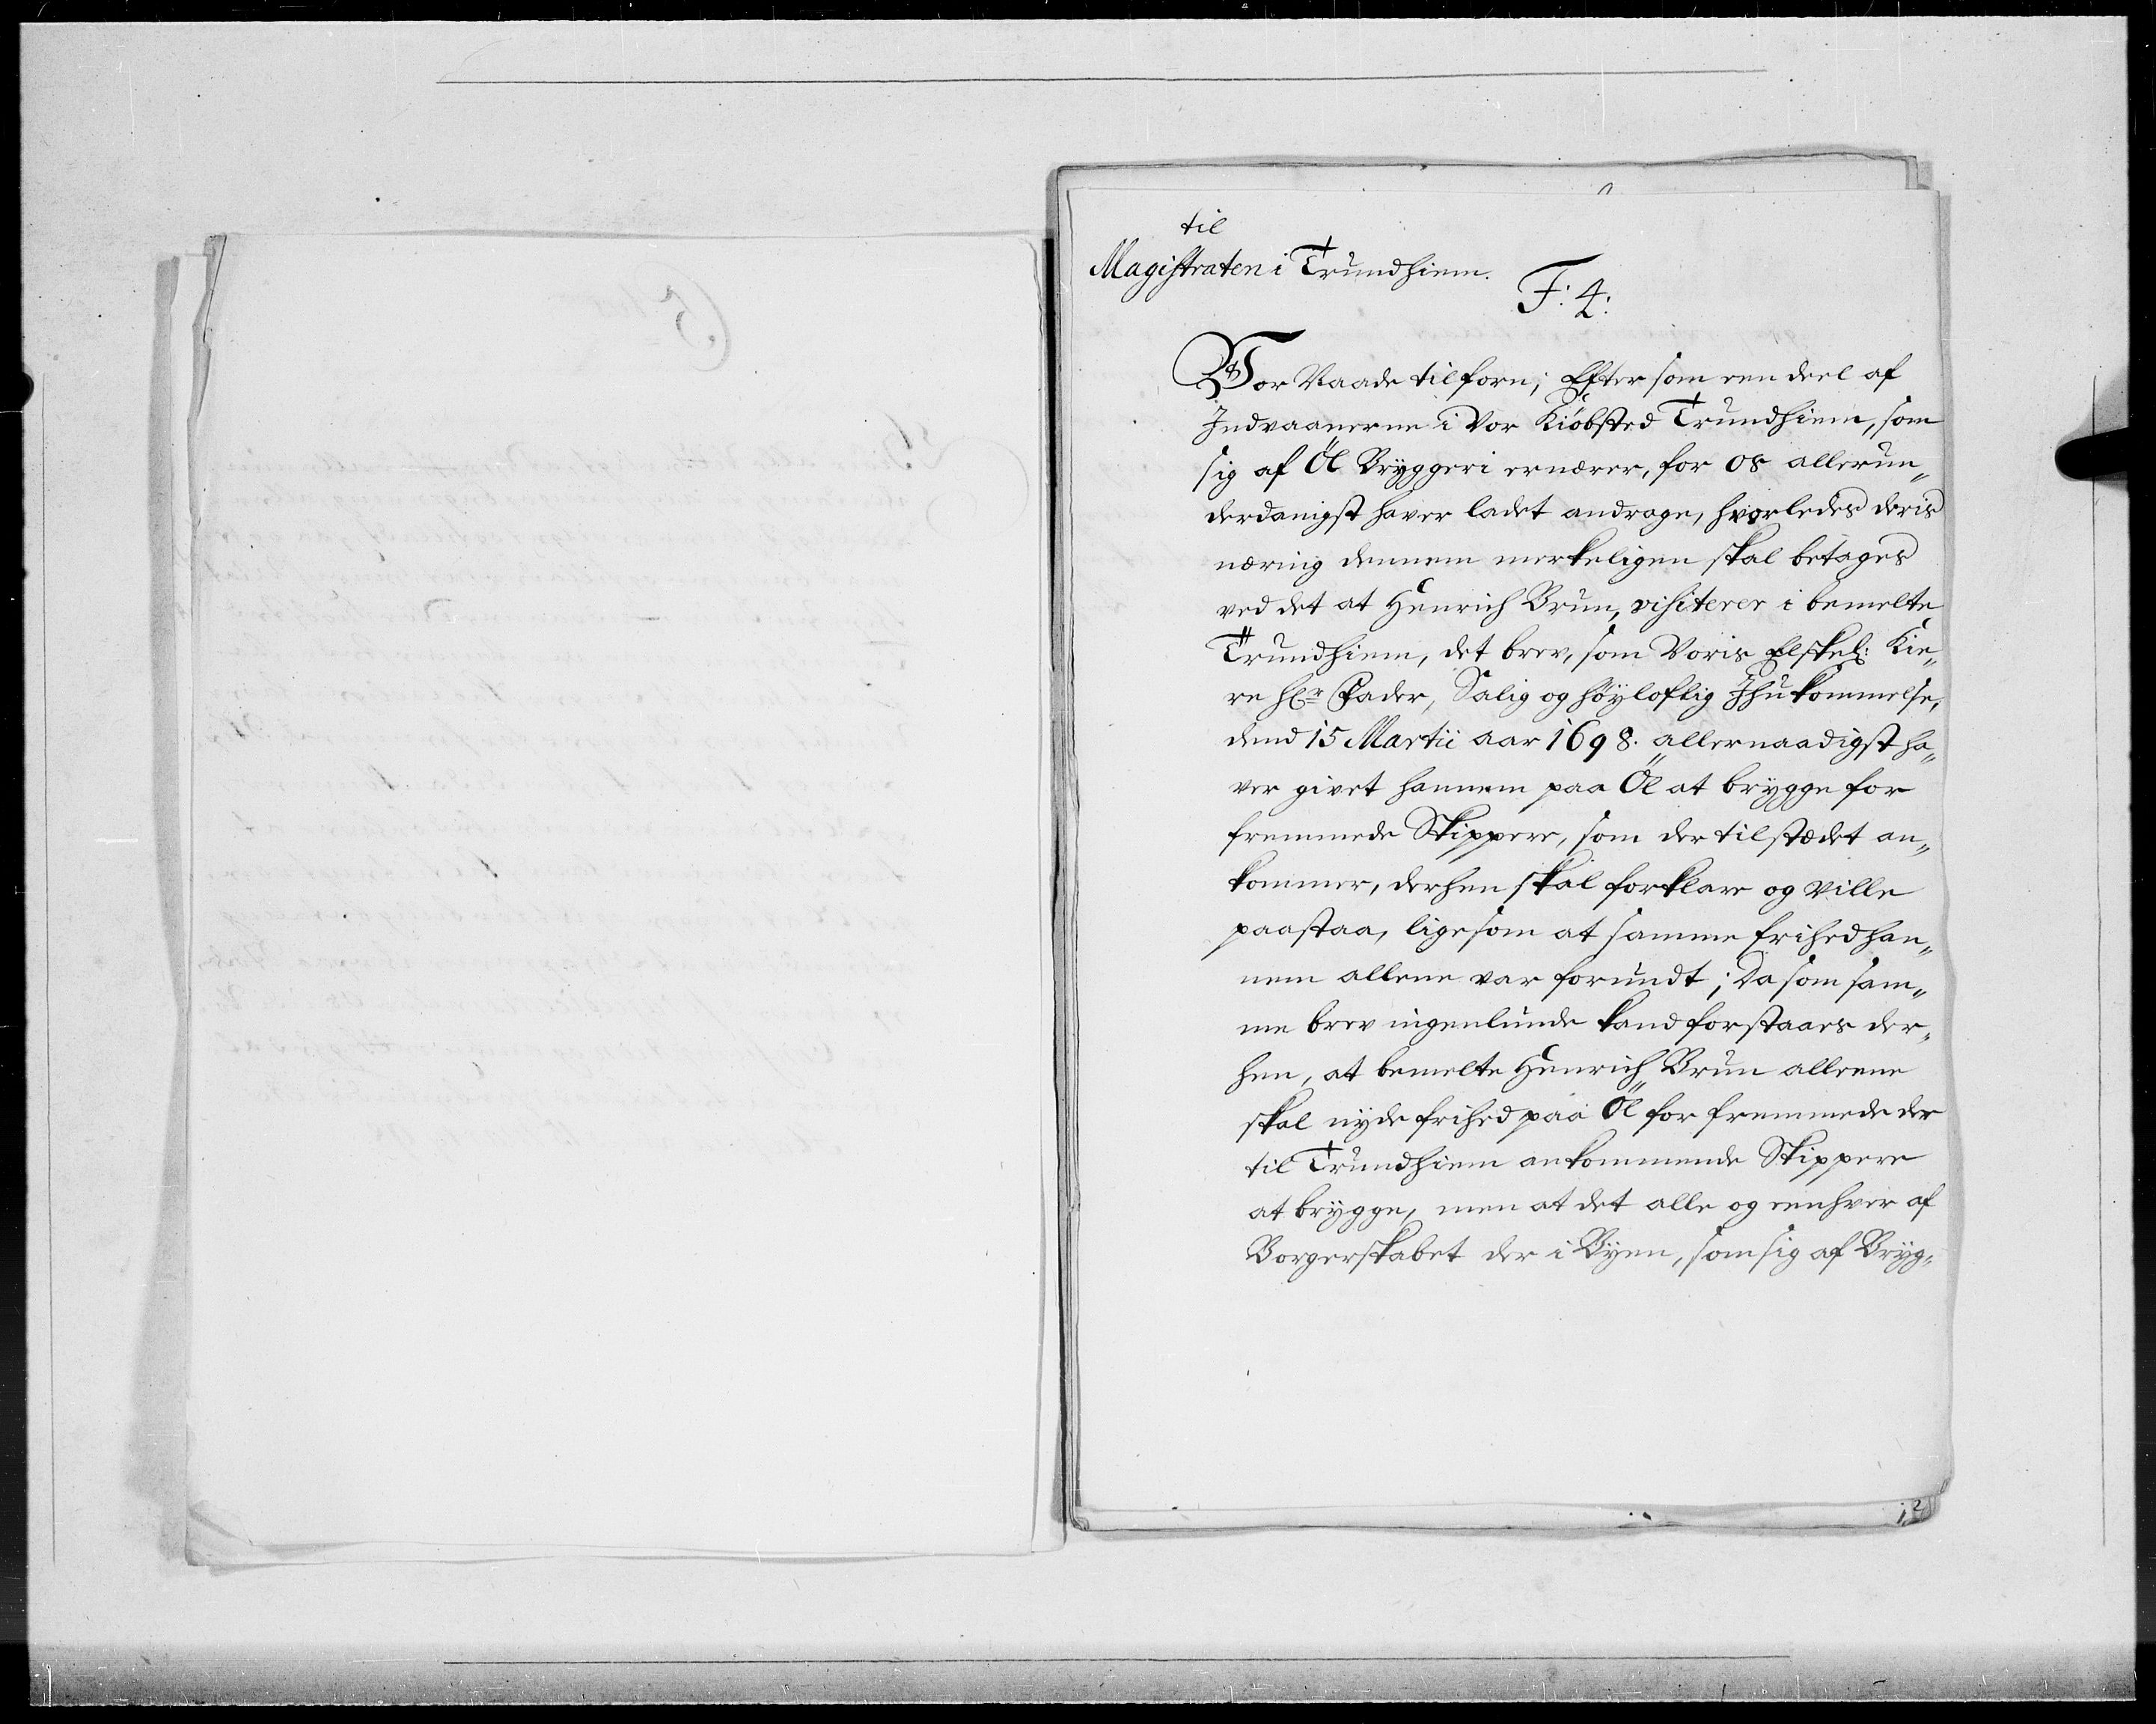 til
Magistraten i Trundhiem.
F: 4:
Vor Naade tilforn; Eftersom een deel af
Indvaanerne i Vor Kiöbsted Trundhiem, som
sig af Öl Bryggeri ernærer, for os allerun„
derdanigst haver ladet andrage, hvorledes deris
næring dennem merkeligen skal betages
ved det at Henrich Brun, visiterer i bemelte
Trundhiem, det brev, som Voris Elskel: Kie„
re Hr Fader, Salig og høyloflig Ihukommelse,
dend 15 Martii aar 1698. allernaadigst ha„
ver givet hannem paa Öl at brygge for
fremmede Skippere, som der til stædet an„
kommer, derhen skal forklare og ville
paastaa, ligesom at samme frihed han„
nem allene var forundt; Da som sam„
me brev ingenlunde kand forstaaes der„
hen, at bemelte Henrich Brun alleene
skal nyde frihed paa Öl for fremmede der
til Trundhiem ankommende Skippere
at brygge, men at det alle og eenhver af
Borgerskabet der i Byen, som sig af Bryg„